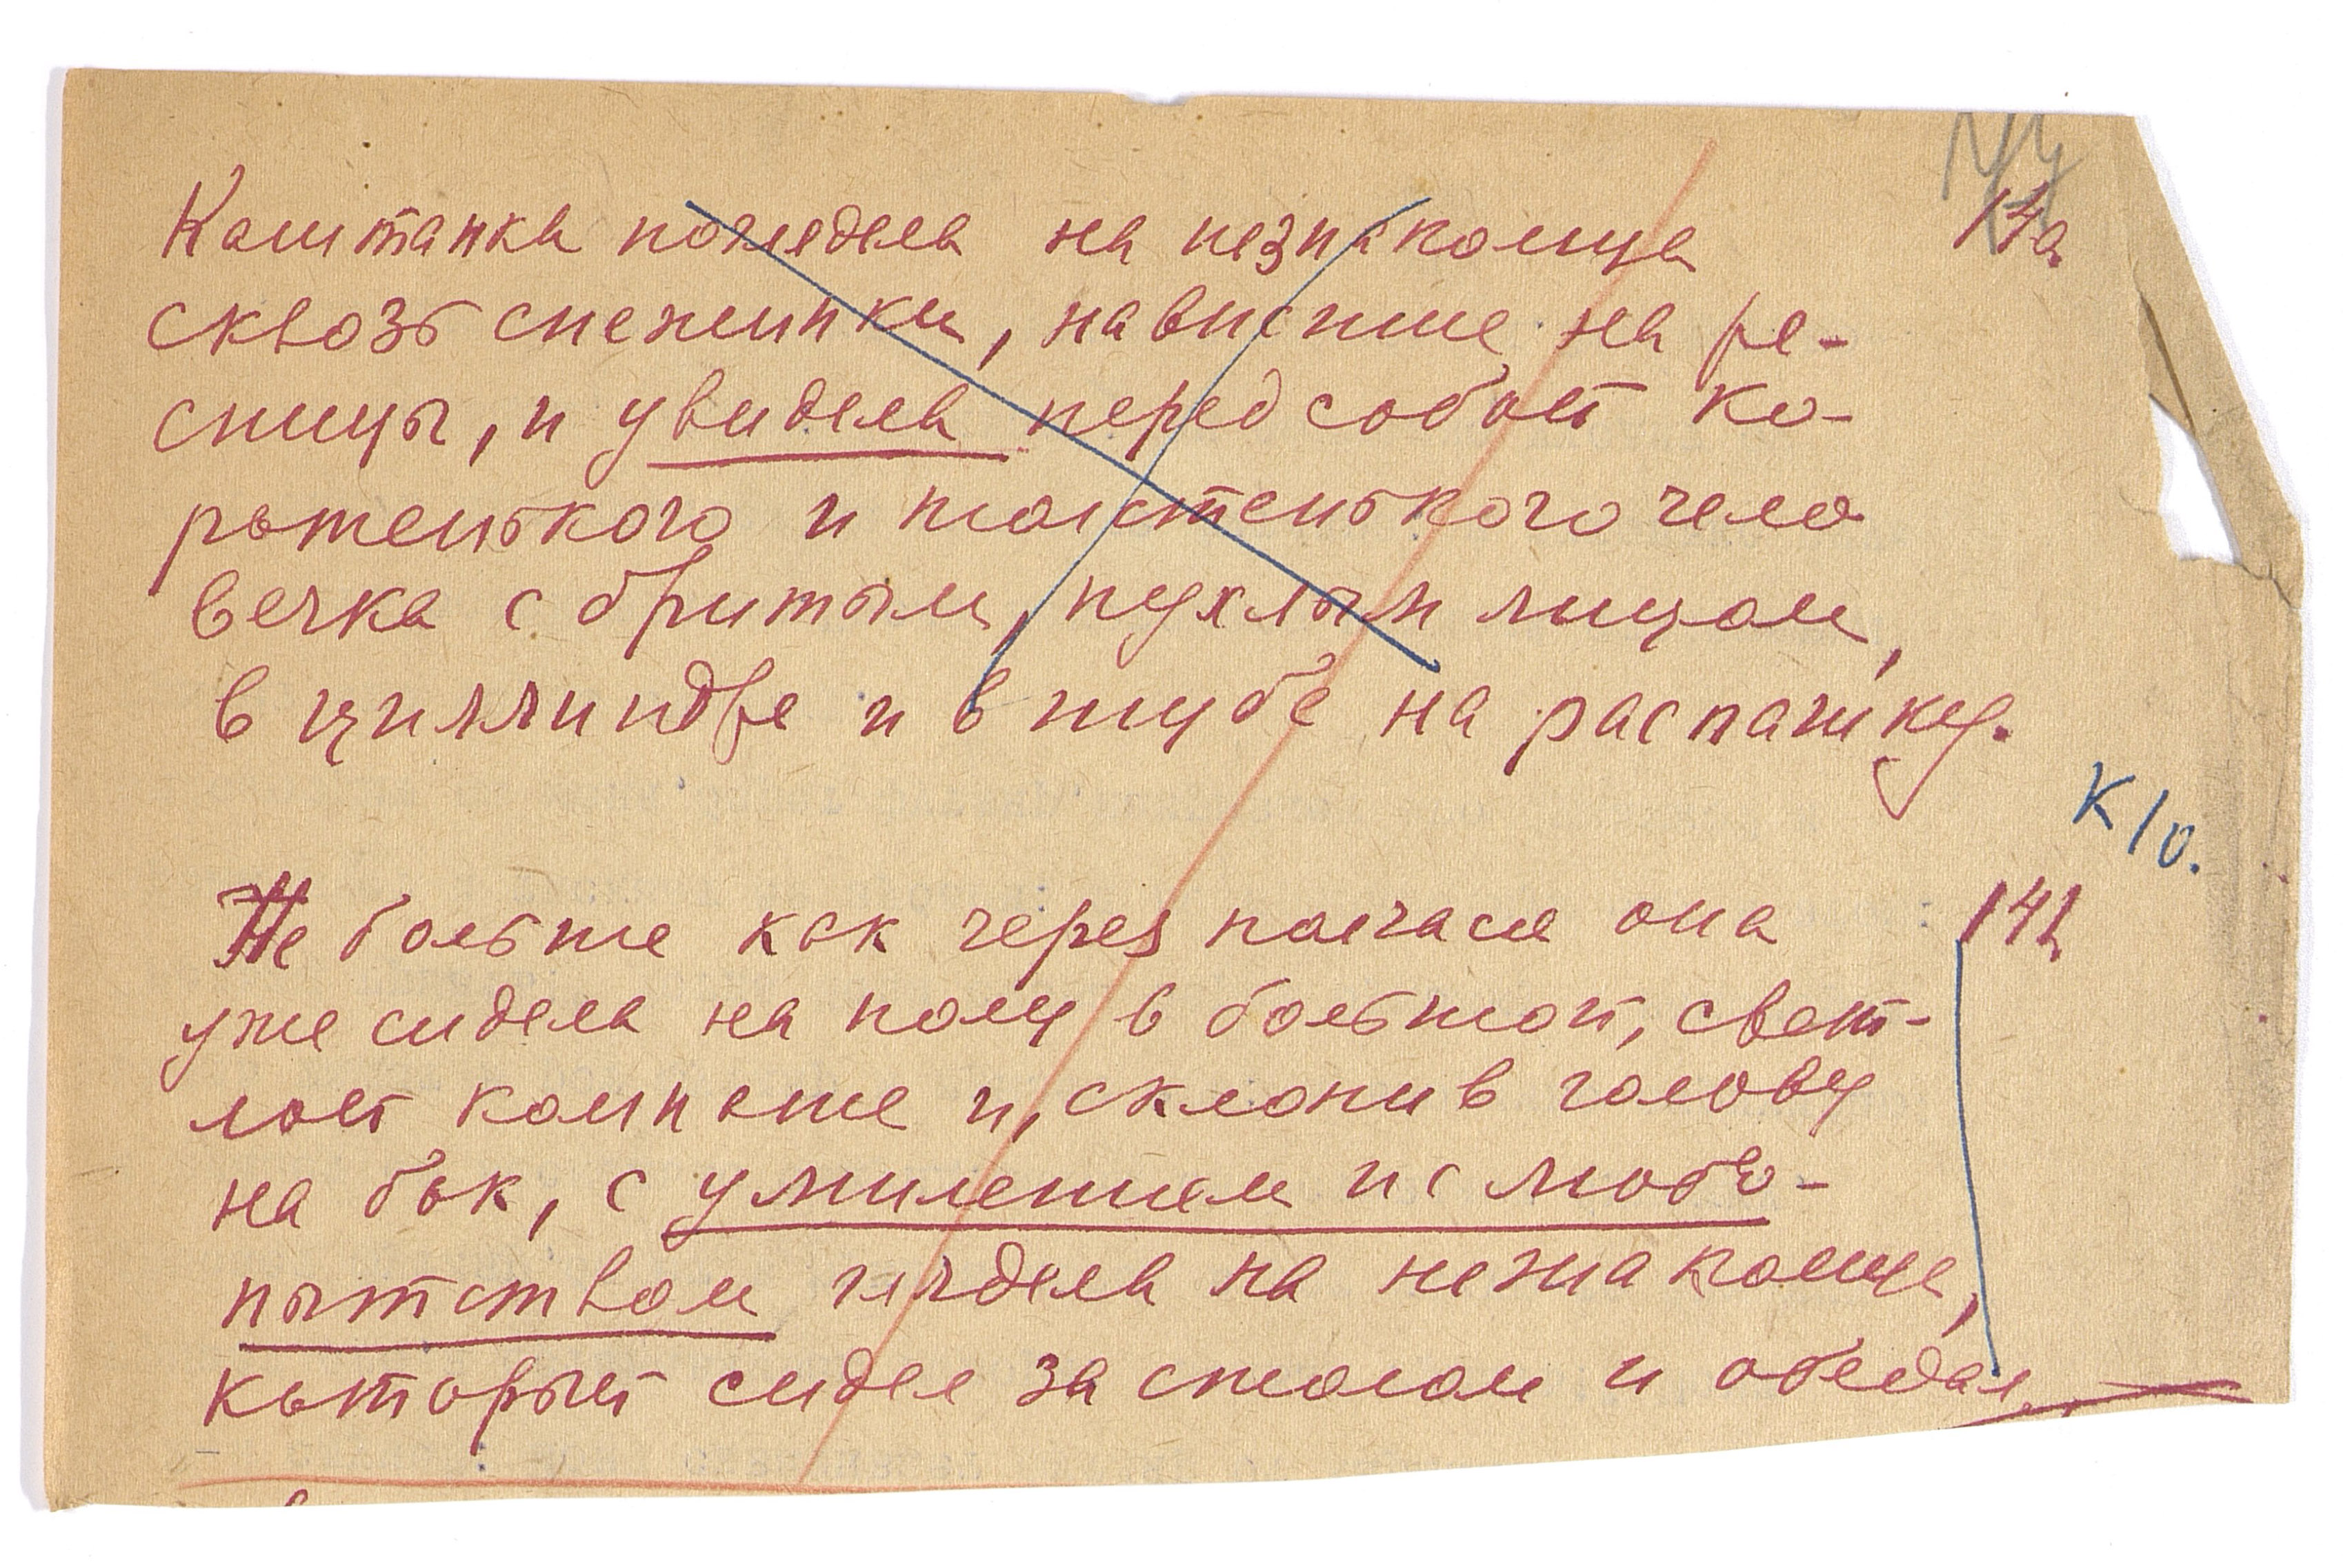 Каштанка поглядела на незнакомца
14а
сквозь снежинки, нависшие на ре-
сницы, и увидела перед собой ко-
ротенького и толстенького чело
вечка с бритым, пухлым лицом,
в циллиндре и в шубе на распашку.
К 10.
Не больше как через полчаса она
уже сидела на полу в большой, свет-
лой комнате и, склонив голову
на бок, с умилением и с любо-
пытством глядела на незнакомца,
который сидел за столом и обедал